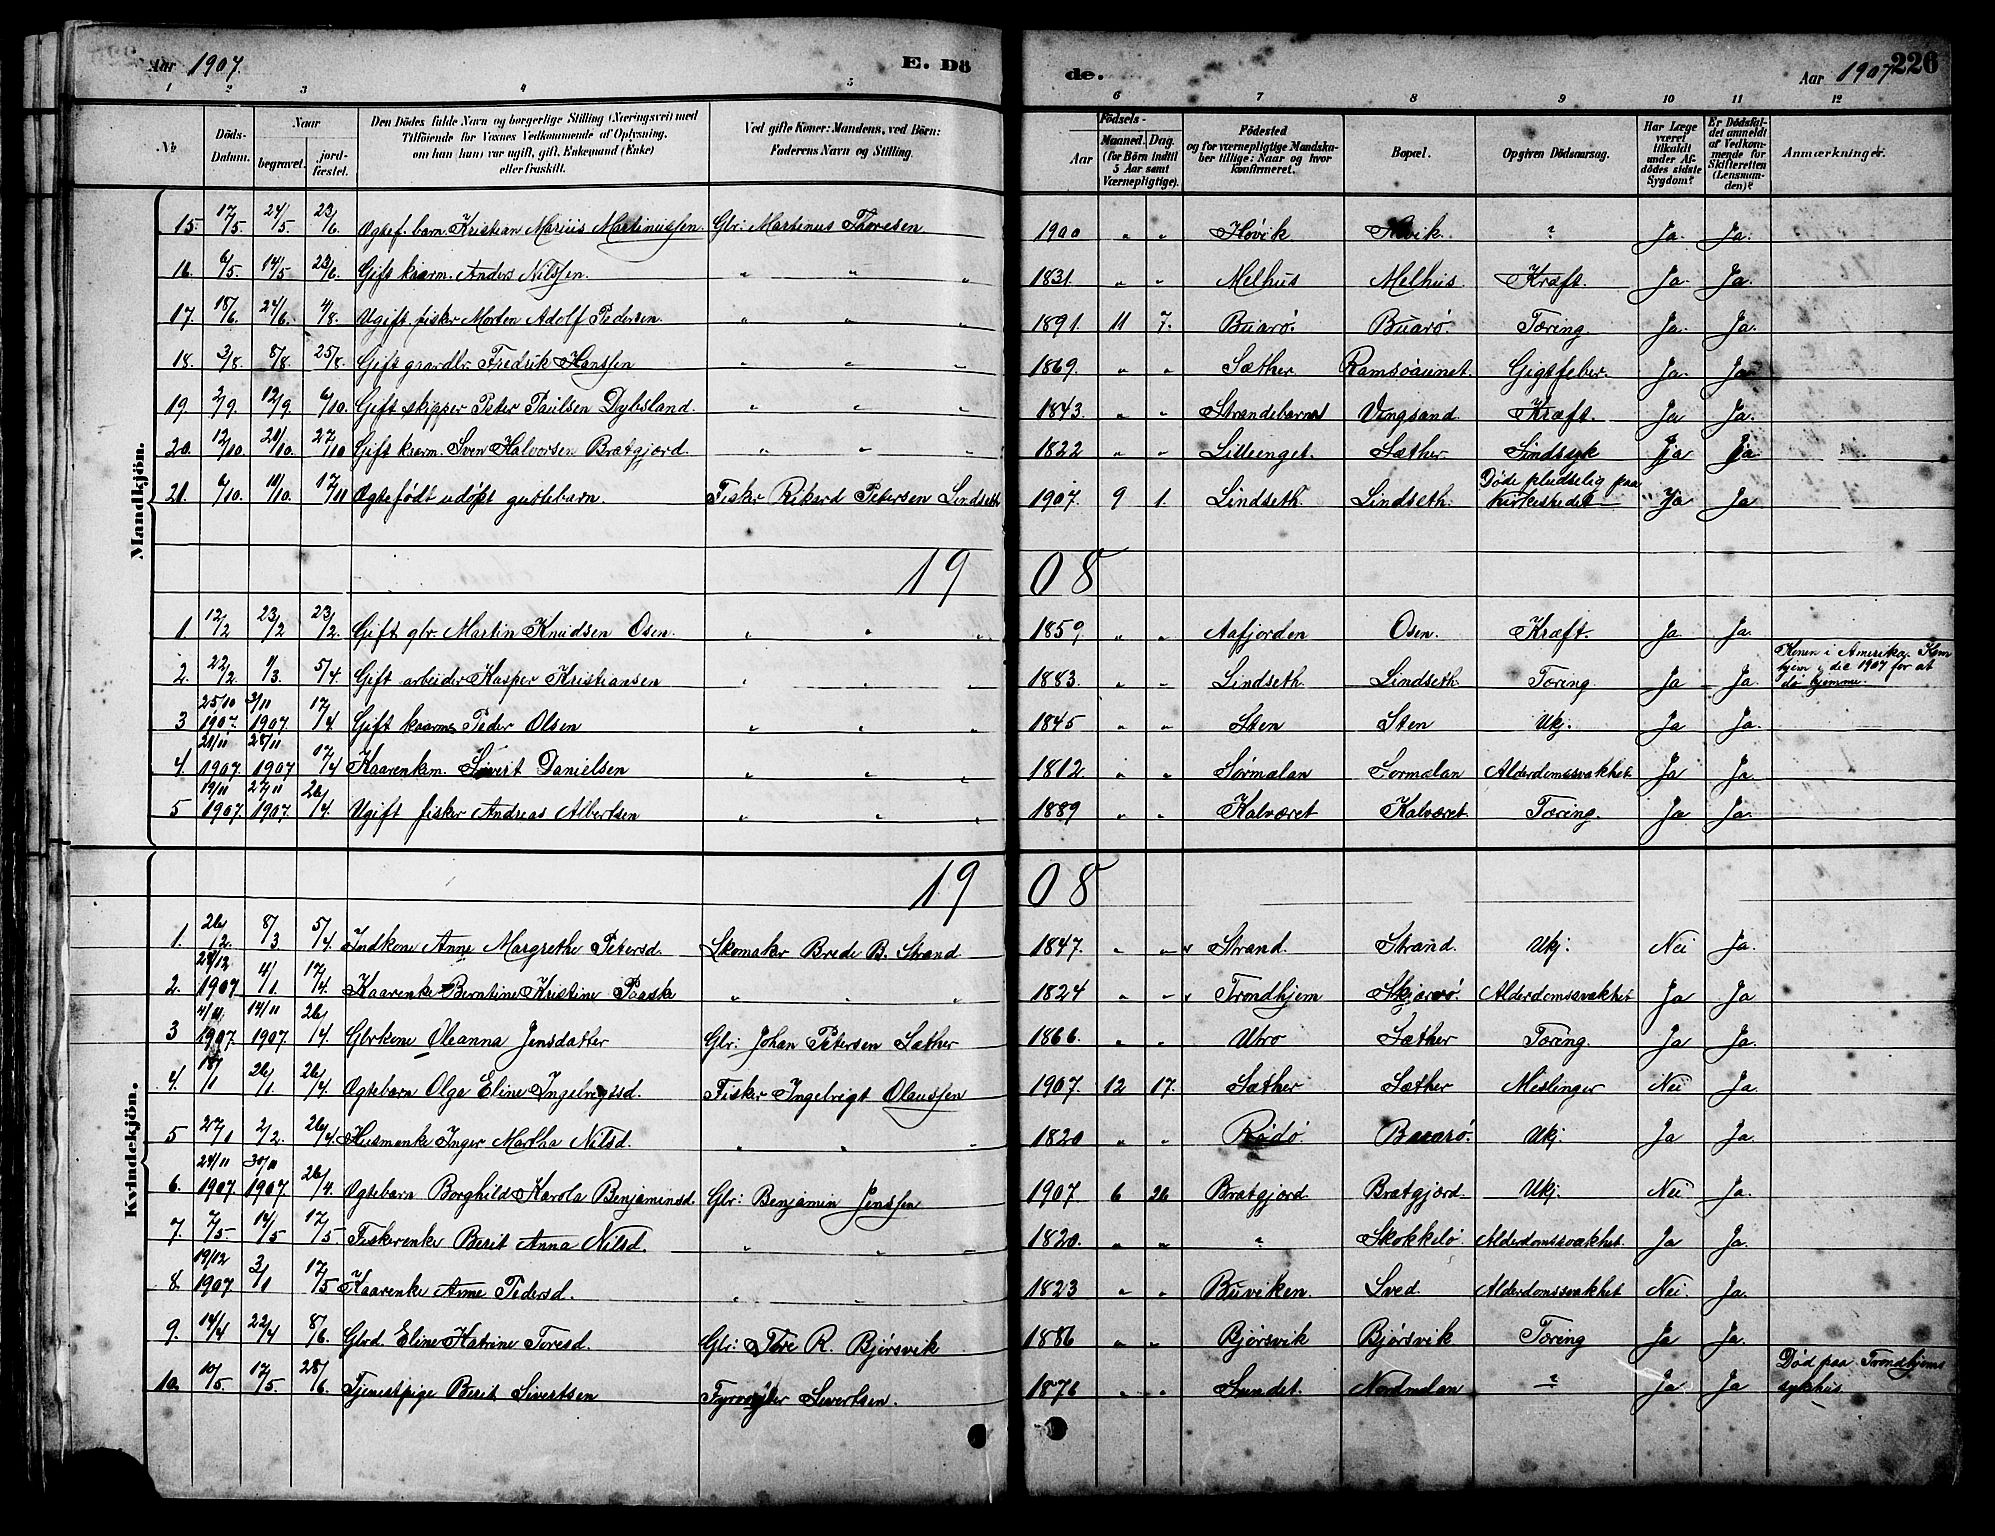 Aar 1907. E. Dö de. Aar 1907 226
1 2 3 4 5 6 7 8 9 10 11 12
No Döds-Datum. Naar begravet. jordfæstet. Den Dödes fulde Navn og borgerlige Stilling (Næringsvei) med Tilföiende for Voxnes Vedkommende af Oplysning, om han (hun) var ugift, gift, Enkemand (Enke) eller fraskilt. Ved gifte Koner: Mandens, ved Börn: Faderens Navn og Stilling. Födsels- Aar Maaned. Dag. (for Börn indtil 5 Aar samt Værnepligtige). Födested og for værnepligtige Mandskaber tillige: Naar og hvor konfirmeret. Bopæl. Opgiven Dödsaarsag. Har Læge været tilkaldt under Afdödes sidste Sygdom? Er Dödsfaldet anmeldt af Vedkommende for Skifteretten (Lensmanden)? Anmærkninger.
Mandkjön.
15. 17/5 24/5 23/6 Ogtef. barn Kristian Marius Martinussen. Gbr: Martinus Thoresen 1900 " " Hövik Hövik ? Ja. Ja.
16. 6/5 14/5 23/6 Gift kaarm. Anders Nilssen. " " " 1831. " " Melhus Melhus Kræft. Ja. Ja.
17. 18/6 24/6 4/8. Ugift fisker Morten Adolf Pedersen. " " " 1891. 11 7. Buarö. Buarö. Tæring Ja. Ja.
18. 3/8. 8/8. 25/8. Gift gaardbr. Fredrik Hanssen " " " 1869. " " Sæther Ramsöaunet. Gigtfeber. Ja. Ja
19. 2/9. 12/9 6/10. Gift skipper Peter Paulsen Dybsland. " " " 1843. " " Strandebarmet Vingsand. Kræft. Ja Ja.
20. 12/10 20/10. 27/10 Gift kaarm. Sven Halvorsen Brætgjærd. " " " 1822 " " Lilleenget. Sæther. Sindssyk Ja Ja
21. 6/10. 10/10. 17/11 Ogtefödt udöpt guttebarn. Fisker Rikard Petersen Lindseth 1907. 9 1. Lindseth. Lindseth. Döde pludselig paa kirkestedet Ja Ja
1908
1 12/2 23/2 23/2. Gift gbr. Martin Knudsen Osen. " " " 1859, " " Aafjorden Osen. Kræft. Ja Ja.
2. 22/2. 1/3. 5/4 Gift arbeider Kasper Kristiansen " " 1883. " " Lindseth. Lindseth. Tæring. Ja Ja. Konen i Amerika. Kom hjem i dec 1907 for at dö hjemme.
3 25/10 1907. 3/11 1907 17/4 Gift kaarm. Peder Olsen " " 1845 " " Sten Sten Ukj. Ja Ja.
4. 20/11 1907. 28/11 1907 17/4 Kaarenkm. Sivert Danielsen " " " 1812 " " Sörmalan Sormalan Alderdomssvakhet Ja Ja.
5 19/11 1907. 27/11 1907. 26/4. Ugift fisker Andreas Albertsen " " " 1889 " " Kalværet Kalværet Tæring. Ja Ja.
Kvindekjön.
1908
1. 26/12. 8/3 5/4. Indkone Anne Margrethe Petersd. Skomaker Brede B. Strand 1847. " " Strand. Strand. Ukj. Nei Ja.
2. 28/12 1907 4/1 17/4. Kaarenke Berntine Kristine Paaske " " " 1824 " " Trondhjem Skjærvö. Alderdomssvakhet Ja Ja
3 1907. 14/11 1907. 26/4. Gbrkone Oleanna Jensdatter Gbr: Johan Petersen Sæther 1866. " " Utro Sæther Tæring. Ja Ja.
4. 18/1 26/1 26/4 Ogtebarn Olga Eline Ingebrigtsd. Fisker Ingebrigt Olaussen 1907. 12 17. Sæther Sæther Meslinger Nei Ja.
5 27/1 2/2. 26/4. Husmenke Inger Martha Nilsd. " " " 1820 " " Rödö Buarö. Ukj. Ja Ja
6. 24/11 1907. 30/11 1907. 26/4. Ogtebarn Borghild Karola Benjaminsd. Gbr: Benjamin Jenssen 1907. 6 26 Bratgjord Bratgjord. Ukj. Nei Ja.
7. 7/5 14/5 17/5. Fiskerenke Berit Anna Nilsd. " " 1820. " " " Skokkelö. Alderdomssvakhet. Ja Ja.
8. 19/12 1907 3/1 17/5 Kaarenke Anne Pedersd. " " " 1823 " " Buviken. Sved. Alderdomssvakhet Nei. Ja.
9. 14/4 22/4 8/6. Gbrd. Eline Katrine Toresd. Gbr: Tore R. Bjørsvik 1886 " " Bjørsvik Bjørsvik Tæring Ja Ja.
10. 10/5. 17/5. 28/6. Tjenestpige Berit Sivertsen Fyrvogter Sivertsen. 1876 " " Sundet. Nordmelan ? Ja Ja Död paa Trondhjems sykhus